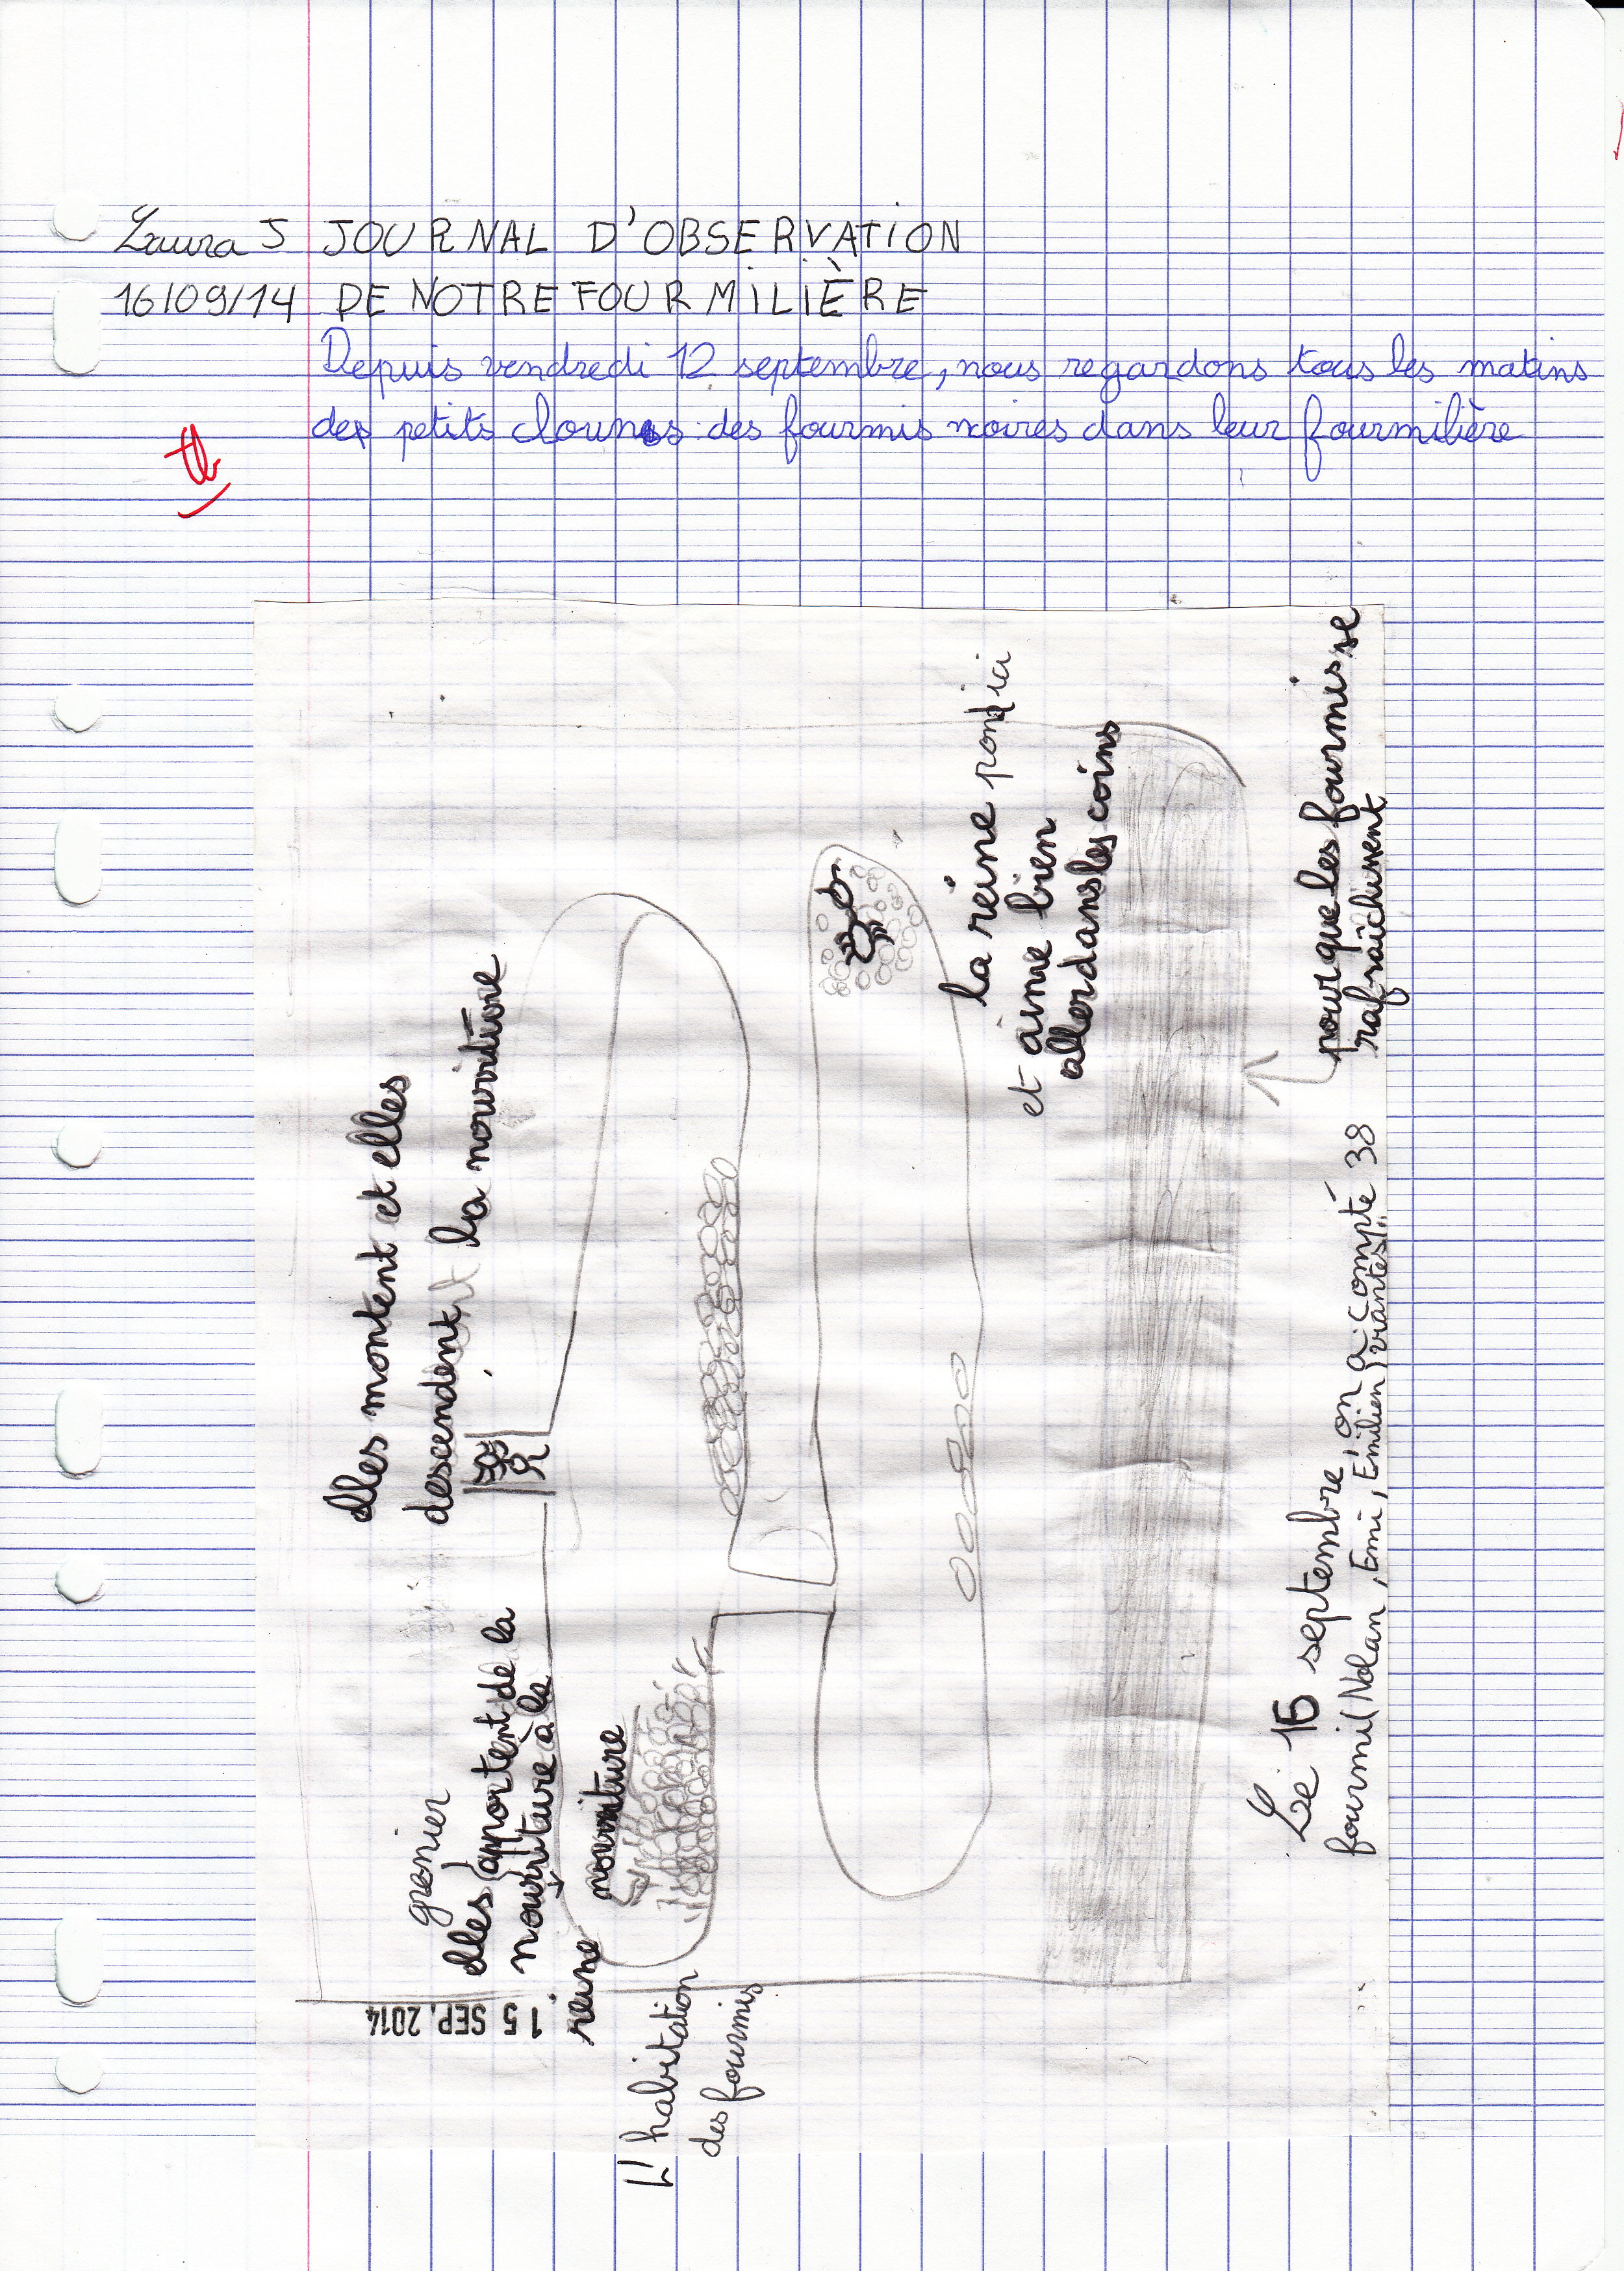 Laura J JOURNAL D'OBSERVATION
16/09/14 DE NOTRE FOURMILIÈRE
Depuis vendredi 12 septembre, nous regardons tous les matins
des petits clowns : des fourmis noires dans leur fourmilière
tb
elles montent et elles
descendent la nourriture
grenier
elles apportent de la
nourriture à la
reine
nourriture
15 SEP. 2014
L'habitation
des fourmis
la reine pond ici
et aime bien
aller dans les coins
pour que les fourmis se
rafraîchissent
Le 15 septembre, on a compté 38
fourmi (Nolan, Emi, Emilien)